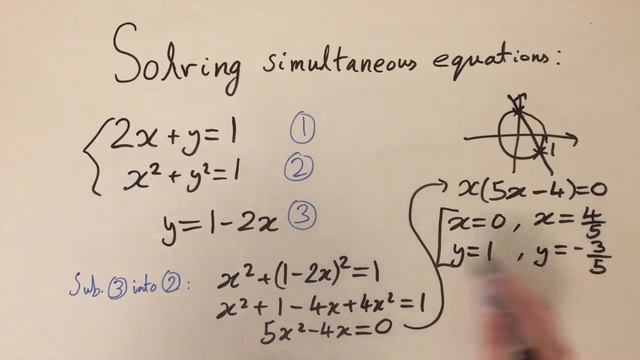 Solving simultaneous equations:
2x+y=1 ①
x²+y²=1 ②
y=1-2x ③
Sub. ③ into ②: x²+(1-2x)²=1
x²+1-4x+4x²=1
5x²-4x=0
1
x(5x-4)=0
x=0, x=4/5
y=1, y=-3/5